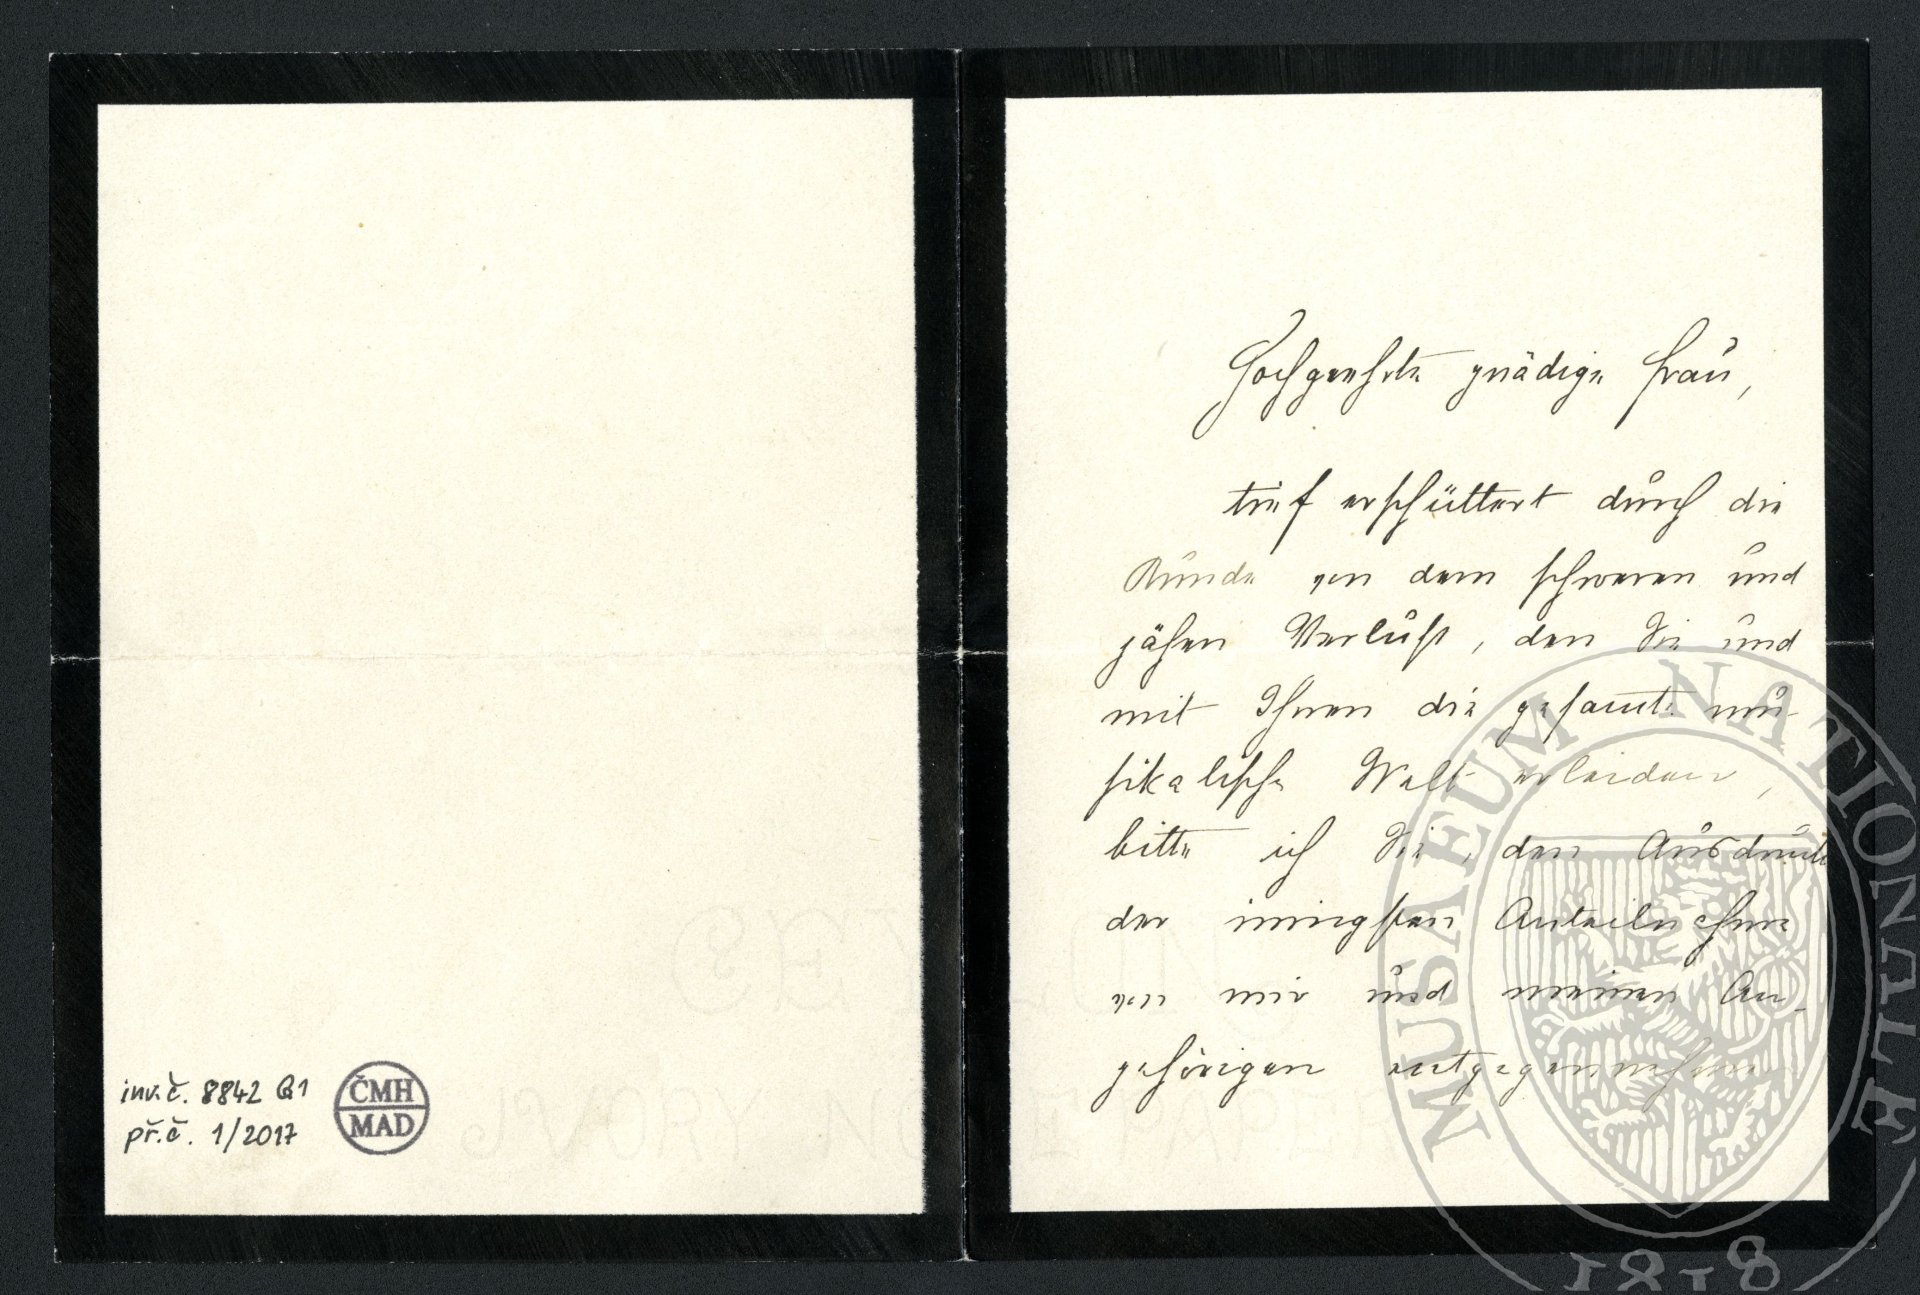 inv.č. 8842 Q1
př.č. 1/2017
ČMH
MAD
Hochgeehrte gnädige Frau,
tief erschüttert durch die
Kunde von dem schweren und
jähen Verlust, den Sie und
mit Ihnen die gesamte mu-
sikalische Welt erleiden,
bitte ich Sie, den Ausdruck
der innigsten Anteilnahme
von mir und meinen An-
gehörigen entgegennehmen
MUSAEUM NATIONALE
1818